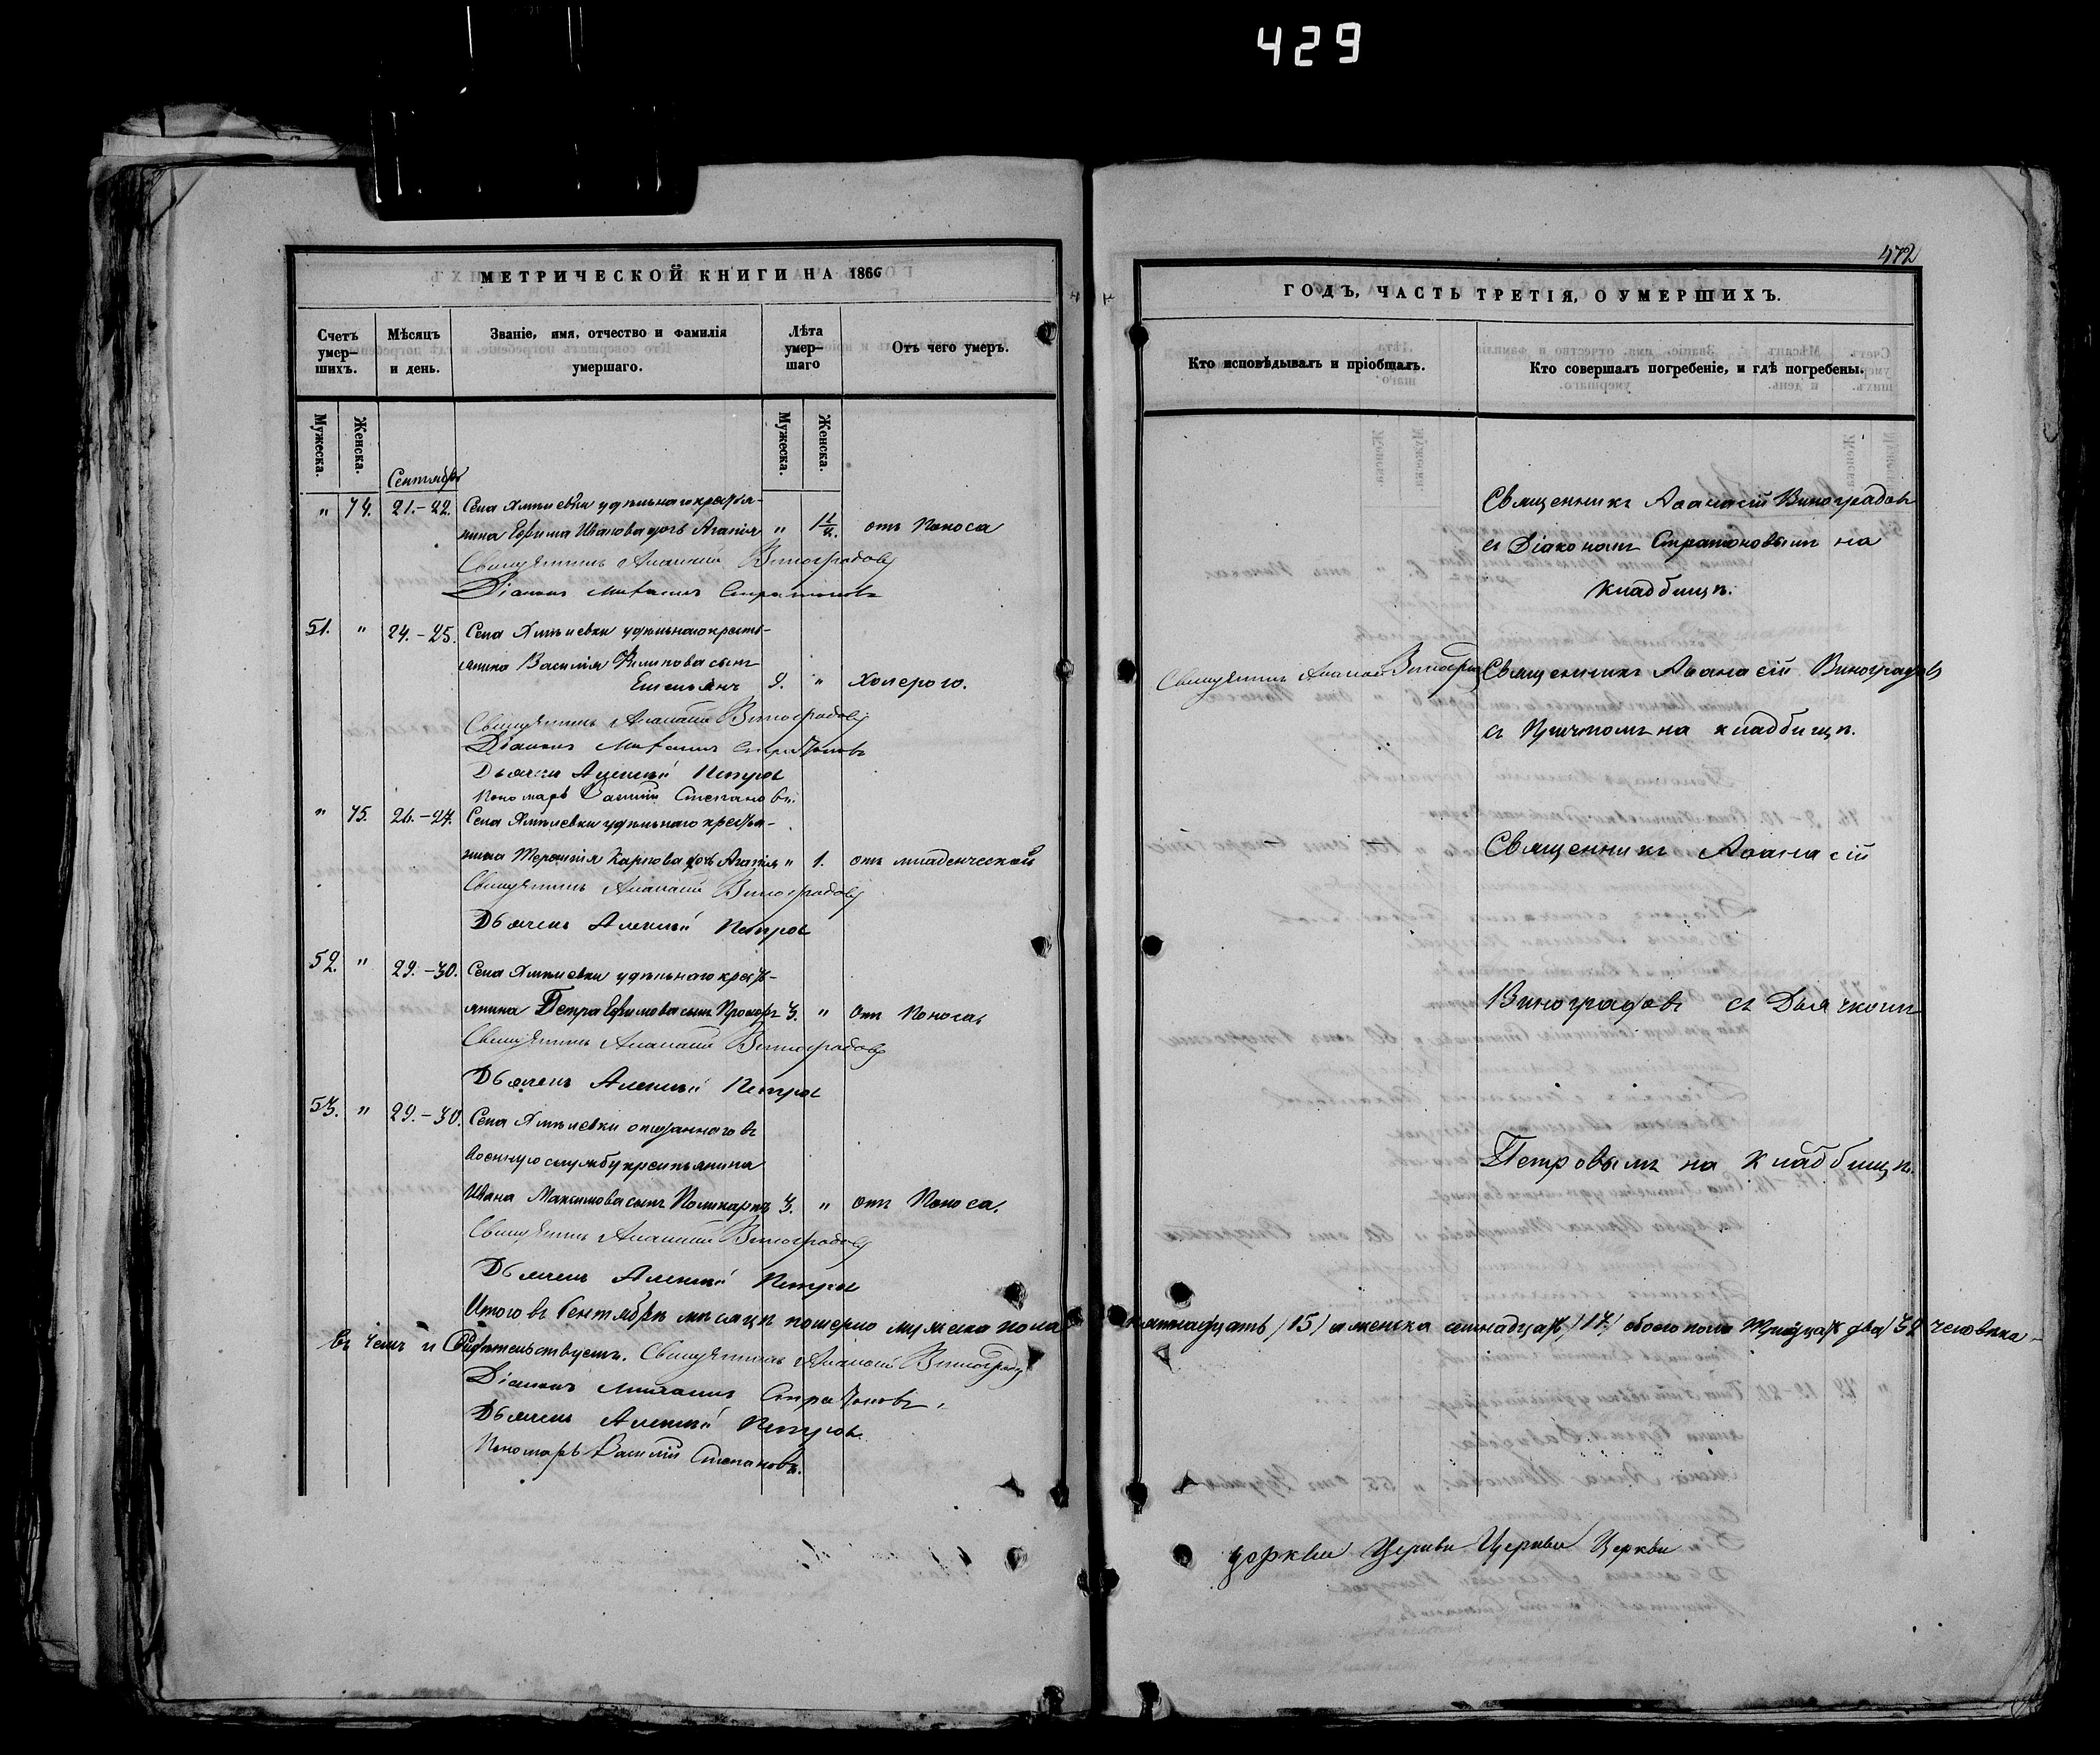 429
МЕТРИЧЕСКОЙ КНИГИ НА 1866
Счетъ умер-шихъ.
Мѣсяцъ и день.
Званіе, имя, отчество и фамилія умершаго.
Лѣта умер-шаго
Отъ чего умеръ.
Мужеска.
Женска.
Мужеска.
Женска.
Сентябрь
" 74. 21.-22. Села удѣльнаго крестья-
нина Ефима Иванова дочь Агапія " отъ Поноса
Священникъ Аѳанасій Виноградовъ
Діаконъ Стратоновъ
51. " 24.-25. Села удѣльнаго кресть-
янина Василія Филипова сынъ
Емельянъ 9. " Холерою.
Священникъ Аѳанасій Виноградовъ
Діаконъ Стратоновъ
Дьячекъ Алексѣй Петровъ
Пономарь Василій Степановъ.
" 75. 26.-27. Села удѣльнаго крестья-
нина Терентія Карпова дочь Агапія " 1. отъ младенческой
Священникъ Аѳанасій Виноградовъ
Дьячекъ Алексѣй Петровъ
52. " 29.-30. Села удѣльнаго кресть-
янина Петра Ефимова сынъ Прохоръ 3. " Отъ Поноса.
Священникъ Аѳанасій Виноградовъ
Дьячекъ Алексѣй Петровъ
53. " 29.-30. Села отданнаго въ
военную службу крестьянина
Ивана Максимова сынъ Поликарпъ 3. " отъ Поноса.
Священникъ Аѳанасій Виноградовъ
Дьячекъ Алексѣй Петровъ
Итого въ Сентябрѣ мѣсяцѣ померло мужеска пола
въ чемъ и Свидѣтельствуемъ. Священникъ Аѳанасій Виноградовъ
Діаконъ Стратоновъ.
Дьячекъ Алексѣй Петровъ.
Пономарь Василій Степановъ.
472
ГОДЪ, ЧАСТЬ ТРЕТІЯ, О УМЕРШИХЪ.
Кто исповѣдывалъ и пріобщалъ.
Кто совершалъ погребеніе, и гдѣ погребены.
Священникъ Аѳанасій Виноградовъ
съ Діакономъ Стратоновымъ на
кладбищѣ.
Священникъ Аѳанасій Виноградовъ Священникъ Аѳанасій Виноградовъ
съ Причтомъ на кладбищѣ.
Священникъ Аѳанасій
Виноградовъ съ Дьячкомъ
Петровымъ на кладбищѣ.
пятнадцать /15/ а женска семнадцать /17/ обоего пола тридцать два /32 человѣка
церкви Церкви Церкви Церкви